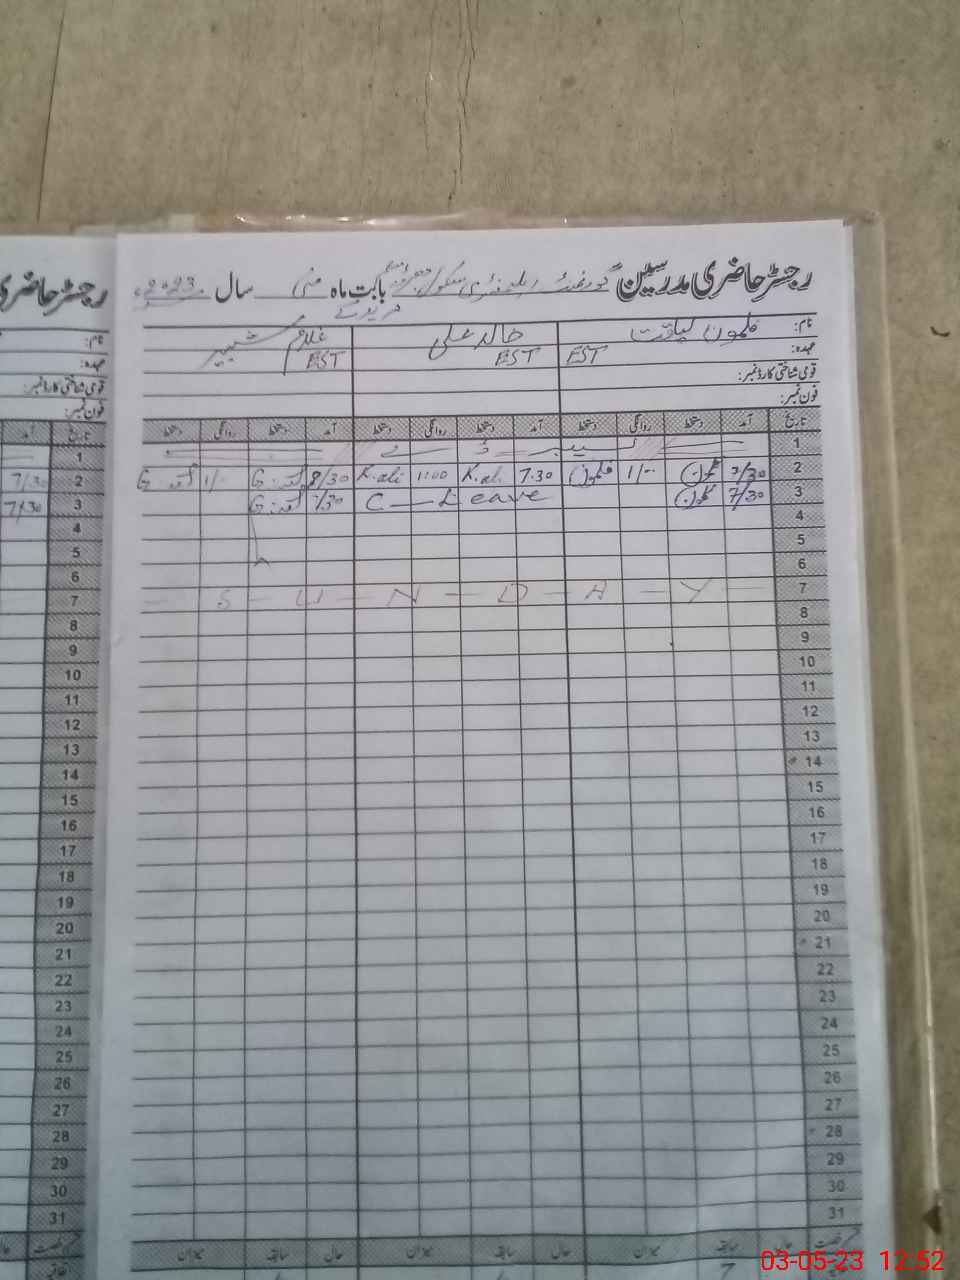 رجسٹر حاضری مدرسین گورنمنٹ ایلیمنٹری سکول بابت ماہ مئی سال 2023ء
نام: لیاقت خالد علی غلام شبیر
عہدہ: EST EST EST
قومی شناختی کارڈ نمبر:
فون نمبر:
تاریخ آمد دستخط روانگی دستخط آمد دستخط روانگی دستخط آمد دستخط روانگی دستخط
1 لیبر ڈے
2 7/30 1/- 7.30 K.ali 1:00 K.ali 8/30 1/-
3 7/30 C - Leave 7/30
4
5
6
7 - S - U - N - D - A - Y -
8
9
10
11
12
13
14
15
16
17
18
19
20
21
22
23
24
25
26
27
28
29
30
31
حال سابقہ میزان حال سابقہ میزان حال سابقہ میزان
رجسٹر حاضری
نام:
عہدہ:
قومی شناختی کارڈ نمبر:
فون نمبر:
تاریخ آمد
1
2 7/30
3 7/30
4
5
6
7
8
9
10
11
12
13
14
15
16
17
18
19
20
21
22
23
24
25
26
27
28
29
30
31
03-05-23 12:52